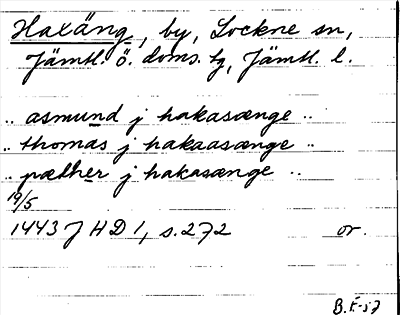 Haxäng, by, Lockne sn,
Jämtl. ö. doms. tg, Jämtl. l.
.. asmund j hakasænge ..
.. thomas j hakaasænge ..
.. pæther j hakasænge ..
19/5
1443 J HD 1, s. 272 or.
B.E-57